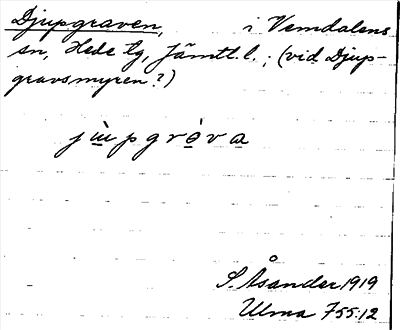 Djupgraven, i Vemdalens
sn, Hede tg, Jämtl.l.; (vid Djup-
gravsmyren?)
jùpgròva
S. Åsander 1919
Ulma 755:12